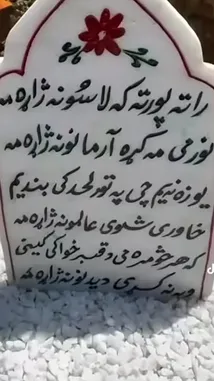 راته پورته که لاسونه ژاړه مه
نور می مه کړه آرمانونه ژاړه مه
یو زه نیم چی په تور لحد کی بندیم
خاوری شوی عالمونه ژاړه مه
که هر څومره می د قبر خوا کی کینی
وبه نه کړی دیدنونه ژاړه مه